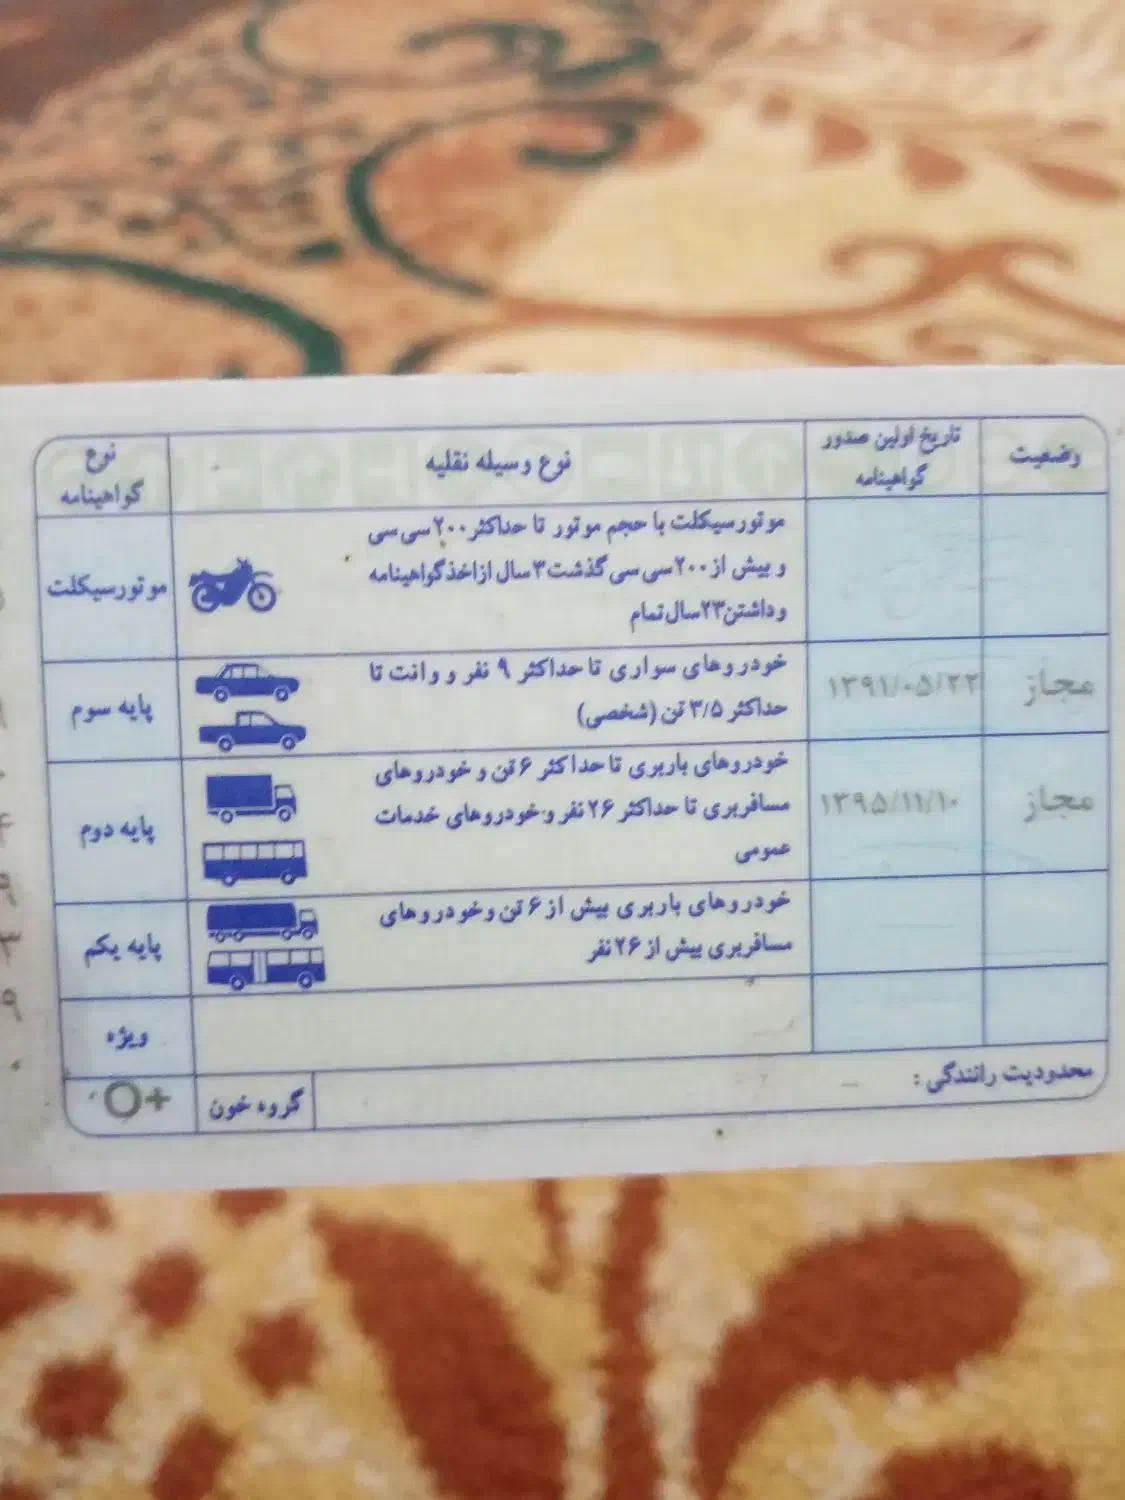 نوع گواهینامه
نوع وسیله نقلیه
تاریخ اولین صدور گواهینامه
وضعیت
موتورسیکلت
موتورسیکلت با حجم موتور تا حداکثر ۲۰۰ سی سی
و بیش از ۲۰۰ سی سی گذشت ۳ سال از اخذ گواهینامه
و داشتن ۲۳ سال تمام
پایه سوم
خودروهای سواری تا حداکثر ۹ نفر و وانت تا
حداکثر ۳/۵ تن (شخصی)
۱۳۹۱/۰۵/۲۲
مجاز
پایه دوم
خودروهای باربری تا حداکثر ۶ تن و خودروهای
مسافربری تا حداکثر ۲۶ نفر و خودروهای خدمات
عمومی
۱۳۹۵/۱۱/۱۰
مجاز
پایه یکم
خودروهای باربری بیش از ۶ تن و خودروهای
مسافربری بیش از ۲۶ نفر
ویژه
محدودیت رانندگی :
گروه خون
O+